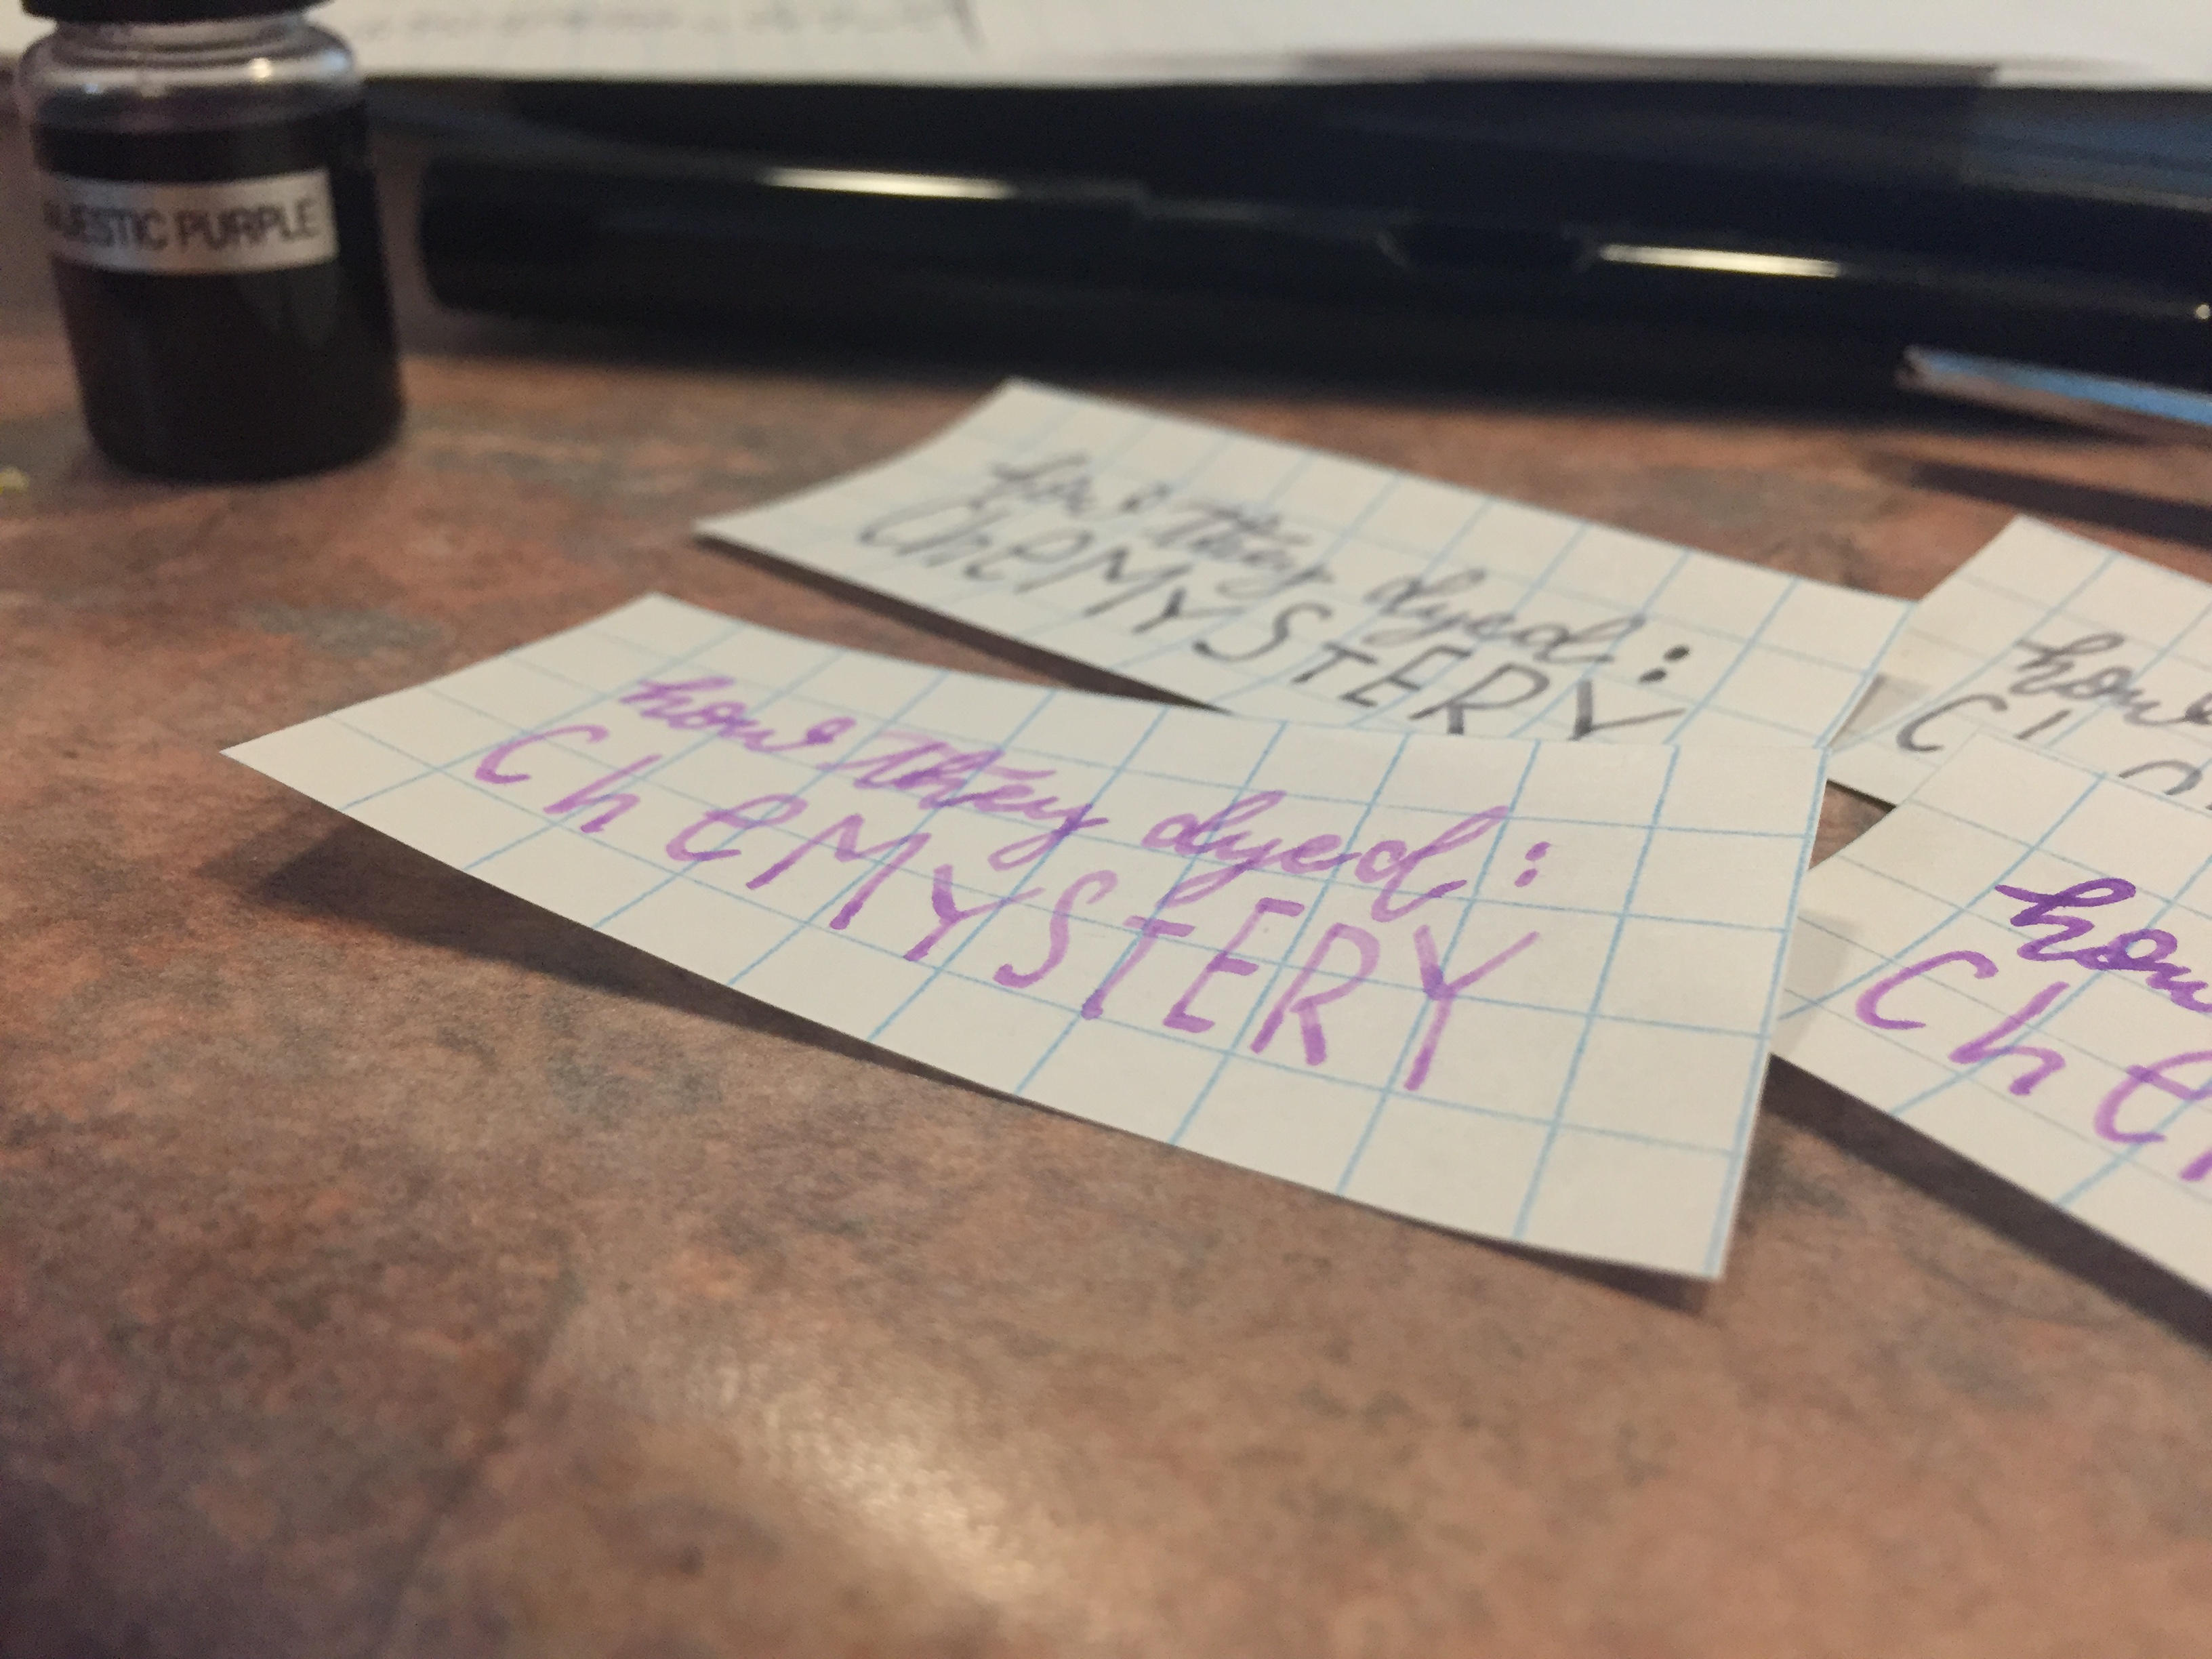 JESTIC PURPLE
how they dyed:
CheMYSTERY
how they dyed:
CheMYSTERY
how
Ch
how
Che